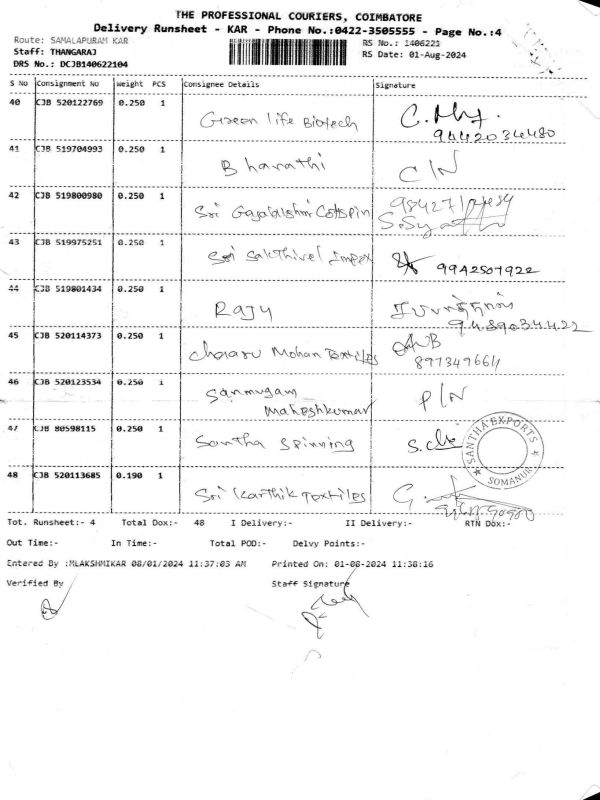 THE PROFESSIONAL COURIERS, COIMBATORE
Delivery Runsheet - KAR - Phone No.:0422-3505555 - Page No.:4
Route: SAMALAPURAM KAR
RS No.: 1406221
Staff: THANGARAJ
RS Date: 01-Aug-2024
DRS No.: DCJB140622104
S No Consignment No Weight PCS Consignee Details Signature
40 CJB 520122769 0.250 1 Green life Biotech
9442034480
41 CJB 519704993 0.250 1 Bharathi C/N
42 CJB 519800980 0.250 1 Sri Gajalakshmi Cotspin
43 CJB 519975251 0.250 1 Sri Sakthivel Impex 9942507922
44 CJB 519801434 0.250 1 Raju
9489034422
45 CJB 520114373 0.250 1 Charu Mohan Textiles
897349664
46 CJB 520123534 0.250 1 Sanmugam P/N
Maheshkumar
47 CJB 80598115 0.250 1 Santha Spinning
SANTHA EXPORTS
SOMANUR
48 CJB 520113685 0.190 1 Sri Karthik Textiles
Tot. Runsheet:- 4 Total Dox:- 48 I Delivery:- II Delivery:- RTN Dox:-
Out Time:- In Time:- Total POD:- Delvy Points:-
Entered By :MLAKSHMIKAR 08/01/2024 11:37:03 AM Printed On: 01-08-2024 11:38:16
Verified By Staff Signature